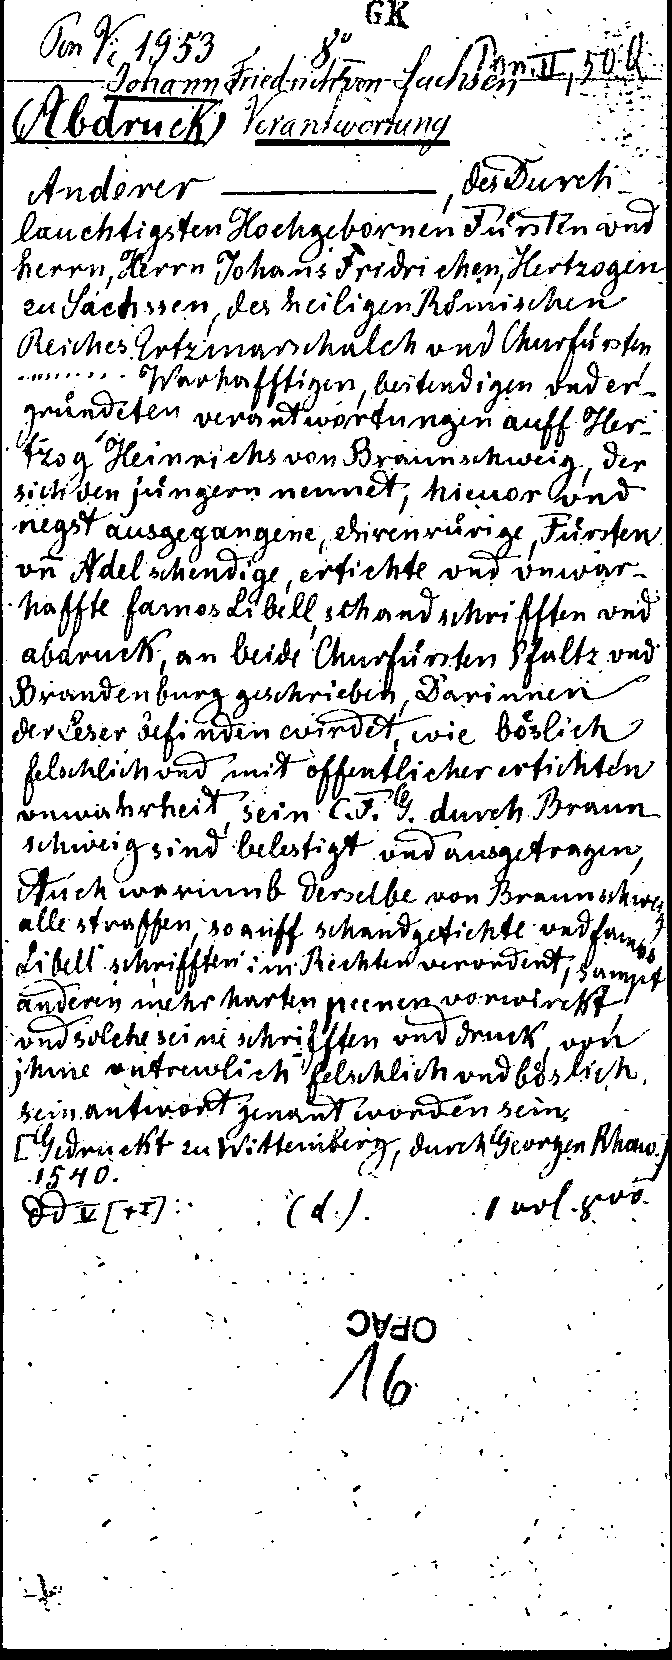 GK
Pon Vc 1953 8°
Johann Friedrich von Sachsen Pon. II, 50 Q
(Abdruck) Verantwortung
Anderer ———, des Durch-
lauchtigsten Hochgebornen Fürsten und
herrn, Herrn Johans Fridrichen, Hertzogen
zu Sachssen, des heiligen Römischen
Reiches Ertzmarschalch und Churfürsten
......... Warhafftigen, bestendigen und er-
gründeten verantwortungen auff Her-
tzog Heinrichs von Braunschweig, der
sich den jüngern nennet, hieuor und
negst ausgegangene, ehrenrürige, Fürsten
vn̄ Adel schendige, ertichte und vnwar-
haffte famos Libell, schandschrifften und
abdruck, an beide Churfürsten Pfaltz und
Brandenburg geschrieben, Darinnen
der Leser befinden wirdet, wie böslich
felschlich und mit offentlicher ertichten
vnwahrheit, sein C.F.G. durch Braun
schweig sind belestigt und ausgetragen,
Auch warumb derselbe von Braunschweig
alle straffen, so auff schandgetichte und famos
Libell schrifften im Rechten verordent, sampt
anderen mehr harten peenen vorwirckt,
und solche seine schrifften und druck, von
jhme vntrewlich felschlich und böslich,
sein antwort genant worden sein.
[Gedruckt zu Wittemberg, durch Georgen Rhaw.]
1540.
Dd V [+I]: (d.). 1 vol. 8vo.
OPAC
16